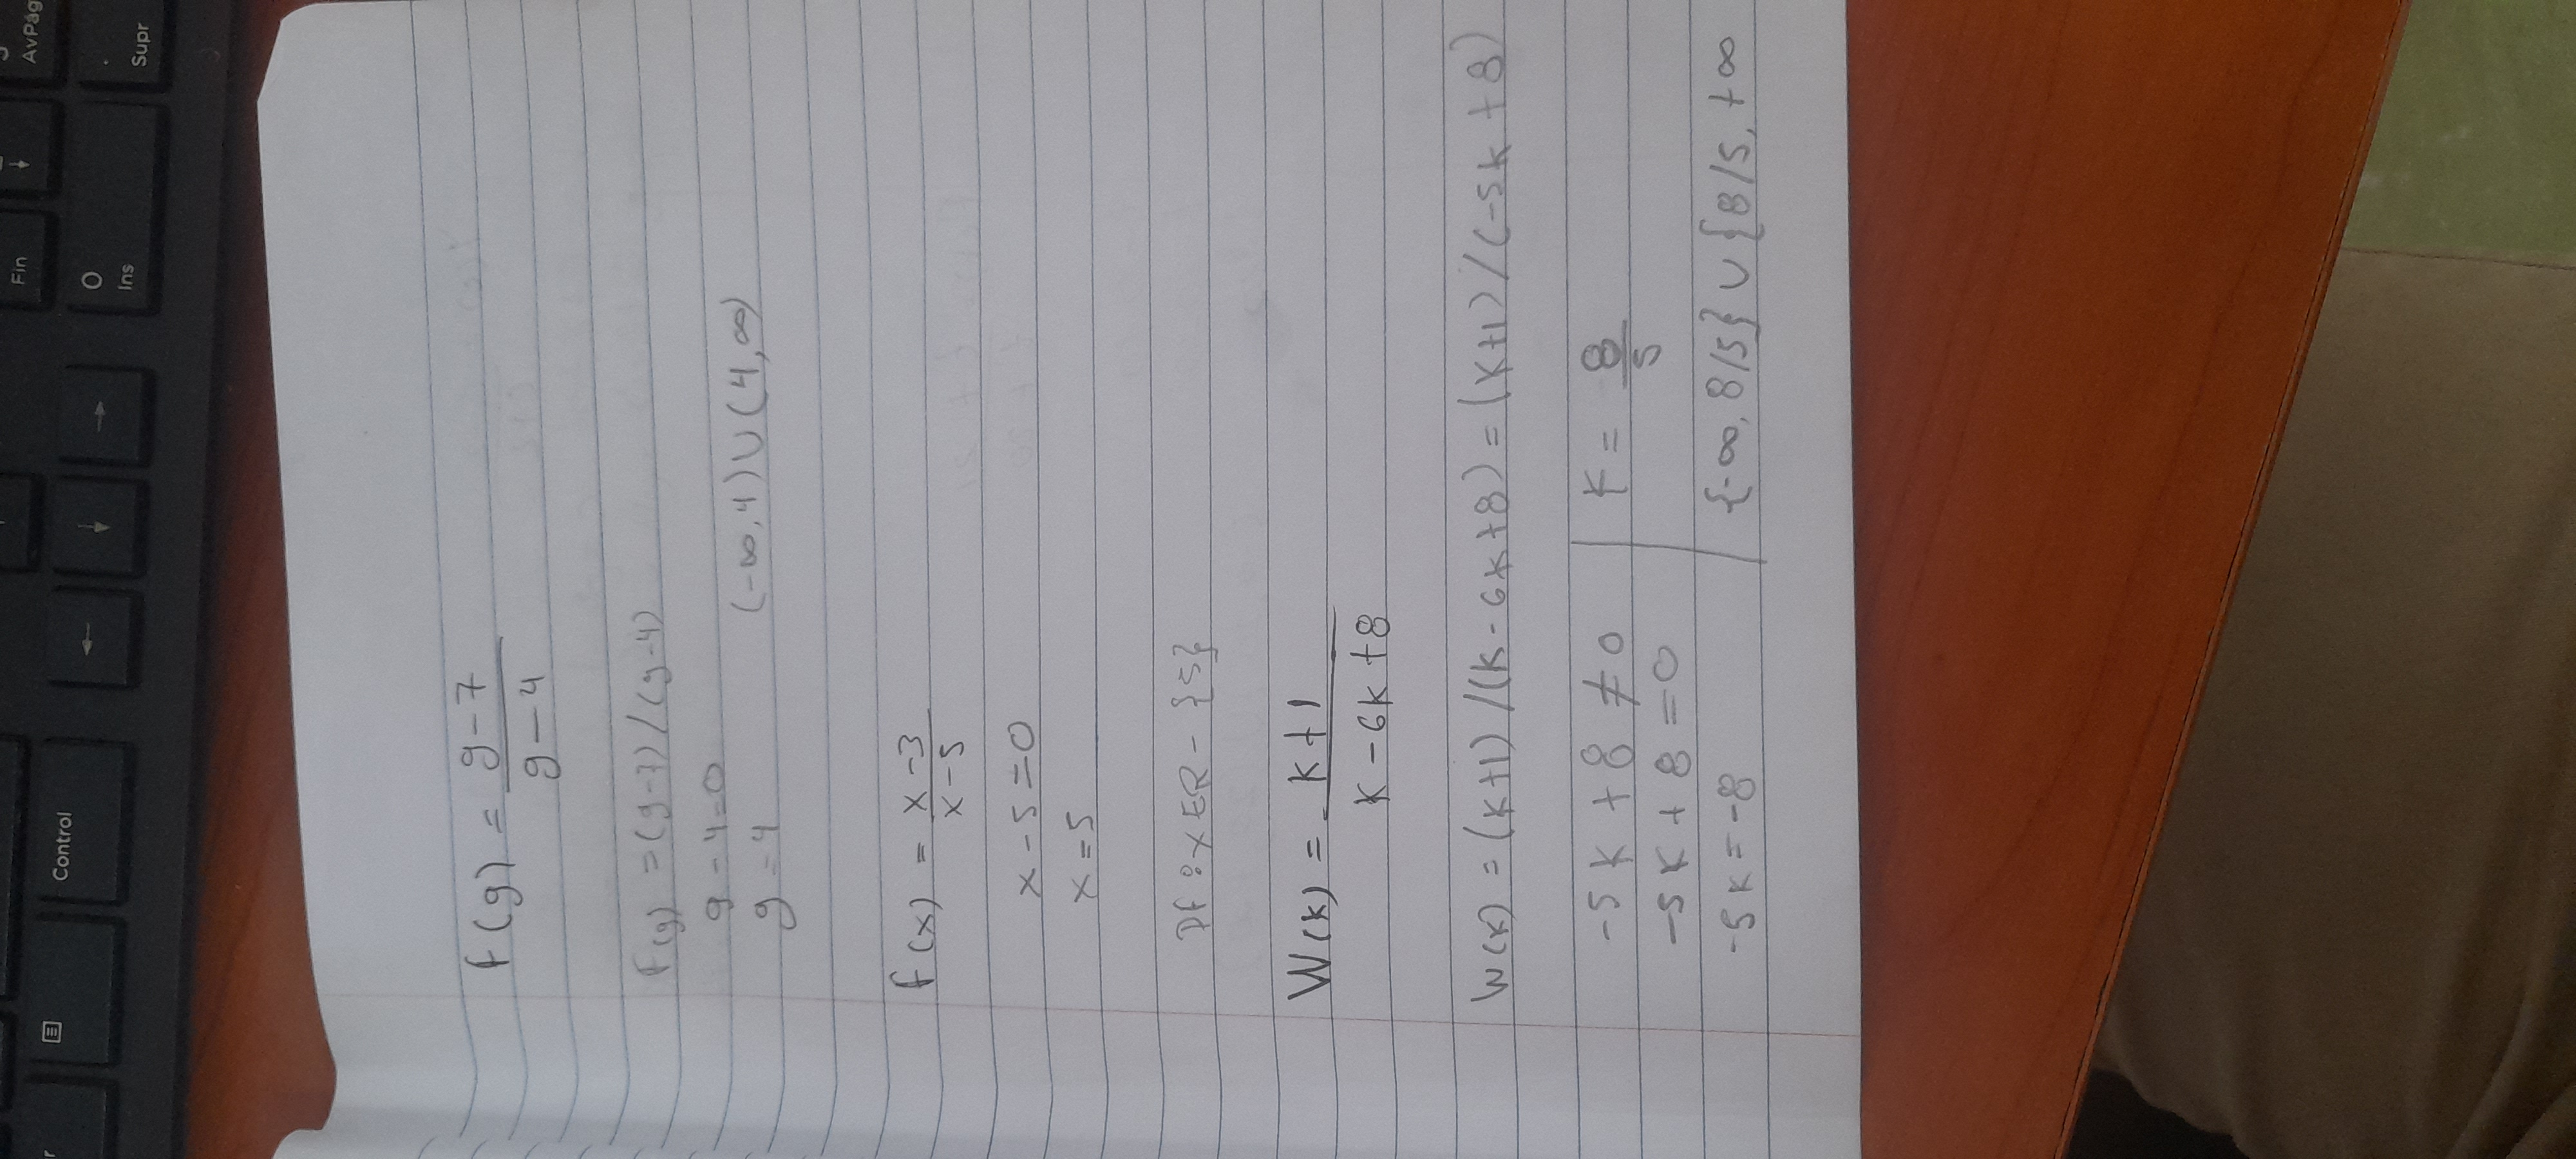 Fin
↓
AvPág
Control
←
↓
→
0
Ins
.
Supr
f(g) = g-7
g-4
F(g) = (g-7)/(g-4)
g-4=0
g=4 (-∞,4)∪(4,∞)
f(x) = x-3
x-5
x-5=0
x=5
Df: x∈R - {5}
W(k) = k+1
k-6k+8
W(k) = (k+1)/(k-6k+8) = (k+1)/(-5k+8)
-5k+8≠0
-5k+8=0
-5k=-8
k = 8
5
{-∞, 8/5} ∪ {8/5, +∞